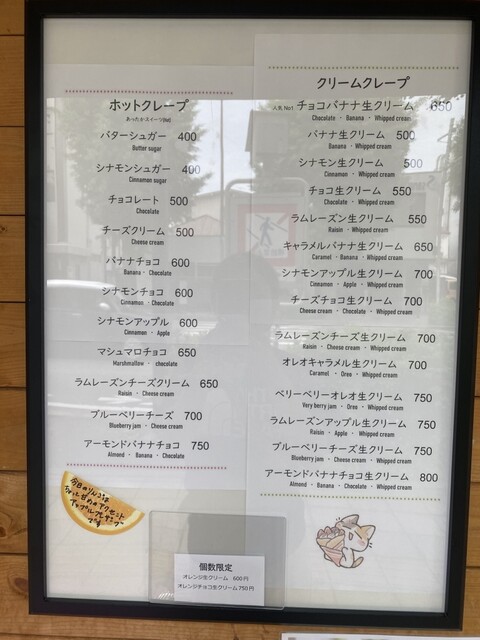 ホットクレープ
バターシュガー 400
Butter sugar
シナモンシュガー 400
Cinnamon sugar
チョコレート 500
Chocolate
チーズクリーム 500
Cheese cream
バナナチョコ 600
Banana ・ Chocolate
シナモンチョコ 600
Cinnamon ・ Chocolate
シナモンアップル 600
Cinnamon ・ Apple
マシュマロチョコ 650
Marshmallow ・ chocolate
ラムレーズンチーズクリーム 650
Raisin ・ Cheese cream
ブルーベリーチーズ 700
Blueberry jam ・ Cheese cream
アーモンドバナナチョコ 750
Almond ・ Banana ・ Chocolate
クリームクレープ
人気 No1 チョコバナナ生クリーム 650
Chocolate ・ Banana ・ Whipped cream
バナナ生クリーム 500
Banana ・ Whipped cream
シナモン生クリーム 500
Cinnamon ・ Whipped cream
チョコ生クリーム 550
Chocolate ・ Whipped cream
ラムレーズン生クリーム 550
Raisin ・ Whipped cream
キャラメルバナナ生クリーム 650
Caramel ・ Banana ・ Whipped cream
シナモンアップル生クリーム 700
Cinnamon ・ Apple ・ Whipped cream
チーズチョコ生クリーム 700
Cheese cream ・ Chocolate ・ Whipped cream
ラムレーズンチーズ生クリーム 700
Raisin ・ Cheese cream ・ Whipped cream
オレオキャラメル生クリーム 700
Caramel ・ Oreo ・ Whipped cream
ベリーベリーオレオ生クリーム 750
Very berry jam ・ Oreo ・ Whipped cream
ラムレーズンアップル生クリーム 750
Raisin ・ Apple ・ Whipped cream
ブルーベリーチーズ生クリーム 750
Blueberry jam ・ Cheese cream ・ Whipped cream
アーモンドバナナチョコ生クリーム 800
Almond ・ Banana ・ Chocolate ・ Whipped cream
今日のりんごは
アップル
です
個数限定
オレンジ生クリーム 600円
オレンジチョコ生クリーム750円